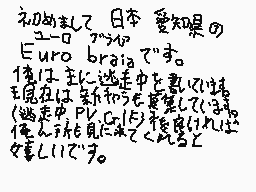 初めまして 日本 愛知県の
ユーロ ブライア
Euro braiaです。
僕は主に逃走中を書いています
現在は新作らも募集しています。
(逃走中,PV,Gr(F) 良ければ
僕ん所も見に来てくれると
嬉しいです。